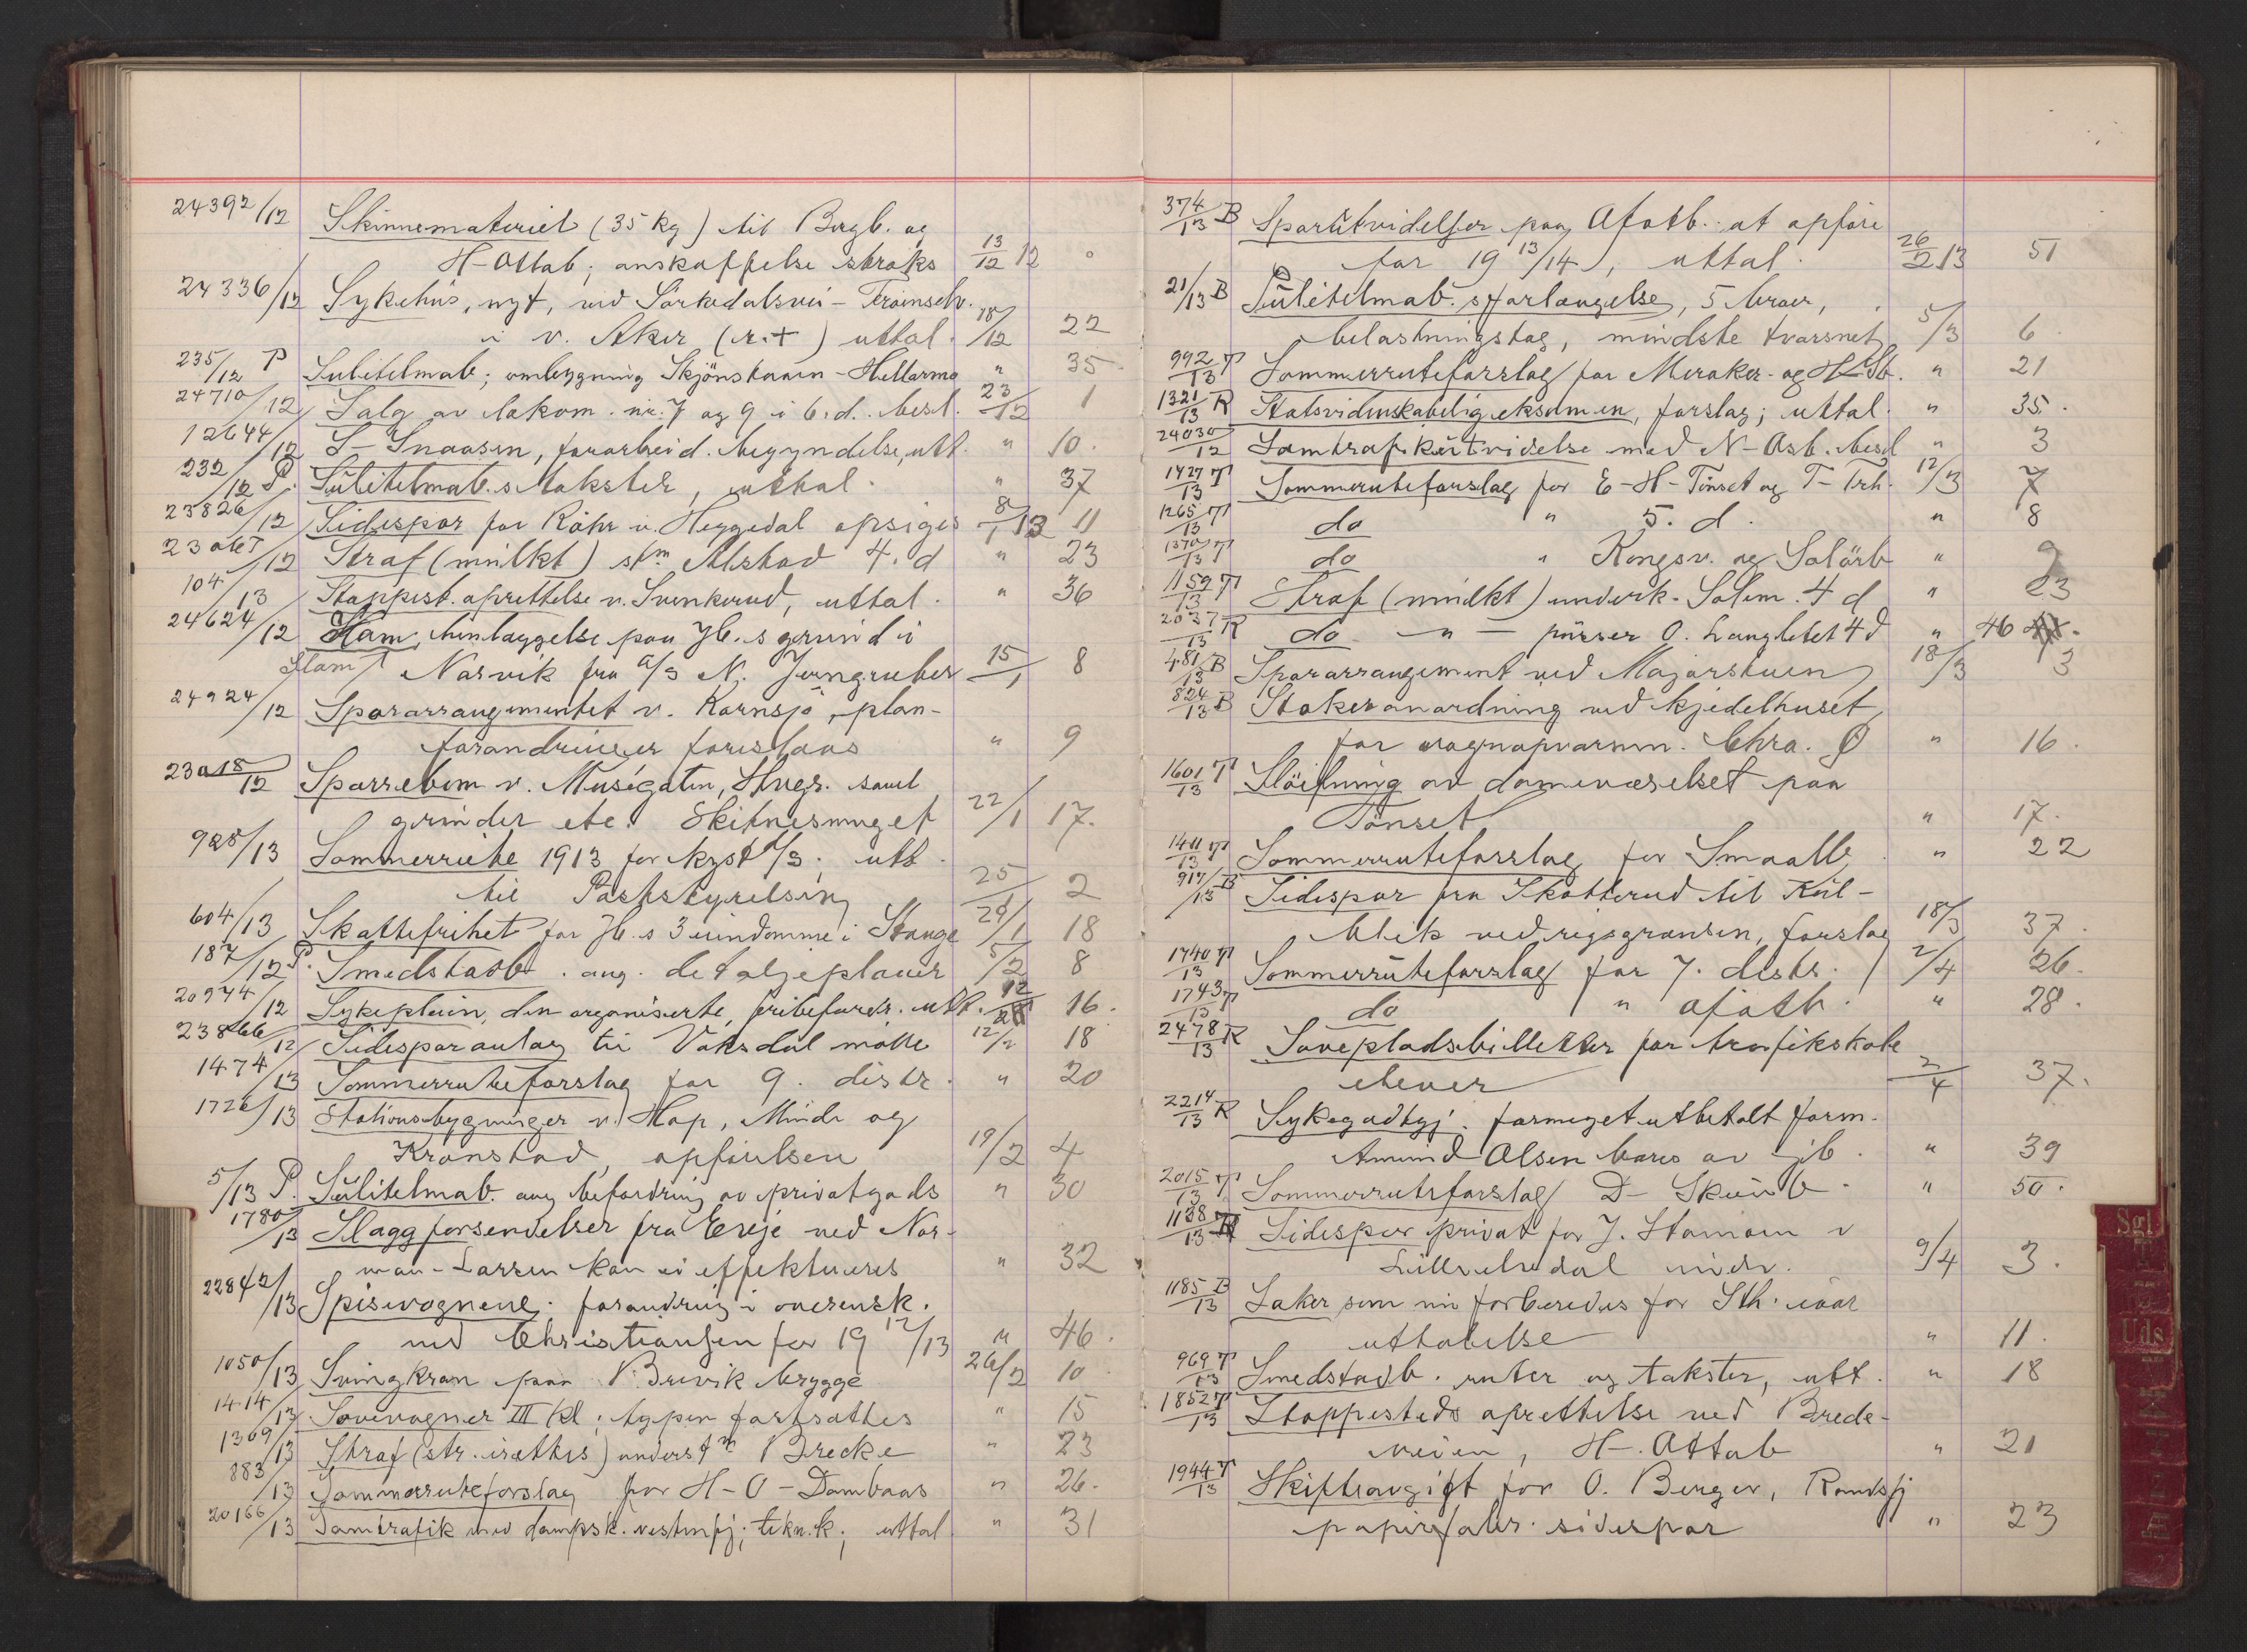 24392/12 Skinnemateriel (35 kg) til Bergb. og
H-Ottab; anskaffelse straks 13/12 12 "
24336/12 Sykehus, nyt, ved Sörkedalsvei - Trainselv.
i v. Aker (r.t) uttal. 18/12 22
235/12 P Sulitelmab; ombygning Skjönstuaen - Hellarmo " 35
24710/12 Salg av lokom. nr. 7 og 9 i 6. d. besl. 23/12 1
12644/12 S-Snaasen, forarbeid. begyndelse, utt. " 10.
232/12 P. Sulitelmab.s takster, uttal. " 37
23826/12 Sidespor for Röhr v. Heggedal opsiges 8/1 13 11
/12 Straf (mulkt) stm Alstad 4. d " 23
104/13 Stoppest. oprettelse v. Svenkerud, uttal. " 36
24624/12 Slam, henlæggelse paa Jb.s grund i
Slam Narvik fra a/s N. Jerngruber 15/1 8
24924/12 Spararrangementet v. Kornsjö, plan-
forandringer foreslaas " 9
/12 Sporrebom v. Musegaten, Stvgr. samt
grinder etc. 22/1 17.
925/13 Sommerrute 1913 for kyst a/s. utt.
til Poststyrelsen 25 2
604/13 Skattefrihet for Jb.s 3 eiendomme i Stange 29/1 18
187/12 P. Smedstadb. ang. detaljeplaner 5/2 8
20974/12 Sykepleien, den organiserte, utt. 12 16.
/12 Sidesporanlæg til Vaksdal mölle 12/2 18
1474/13 Sommerruteforslag for 9. distr. " 20
1726/13 Stationsbygninger v. Hop, Minde og
Kronstad, opförelsen 19/2 4
5/13 P. Sulitelmab. ang befordring av privatgods " 30
1780/13 Slagg forsendelser fra Ereje ved Nor-
man-Larsen kan ei effektueres " 32
/13 Spisevognene; forandring i overensk.
med Christiansen for 19 12/13 " 46.
1050/13 Svingkran paa Brevik brygge 26/2 10
1414/13 Sovevogner III Kl; typen fortsættes " 15
1309/13 Straf (str. irættes) underst m Brecke " 23
883/13 Sommerruteforslag for H-O-Dombaas " 26.
20166/13 Samtrafik med dampsk. vestenfj; tekn. k; uttal " 31
374/13 B Sporutvidelser paa Ofotb. at opföre
for 19 13/14, uttal. 26/2 13 51
21/13 B Sulitelmab.s forlængelse, 5 broer,
belastningstog, mindste tværsnet 5/3 6.
992/13 T Sommerruteforslag for Meraker- og H-Sb. " 21
1321/13 R Statsvidenskabelig eksamen, forslag; uttal. " 35.
24030/12 Samtrafikutvidelse med N-Asb. besl " 3
1427/13 T Sommerruteforslag for E-H-Tönset og T-Trh. 12/3 7
1265/13 T do " 5. d. " 8
1370/13 T do " Kongsv. og Solörb " 9
1159/13 T Straf (mulkt) underk. Solem. 4 d " 23
2037/13 R do " pusser O. Langletet 4 d " 46
481/13 B Spararrangement ved Majorstuen 18/3 3
824/13 B Stokeranordning ved kjedelhuset
for vognopvarmn. Chra. Ö " 16.
1601/13 T Slöifning av dameværelset paa
Tönset " 17.
1411/13 T Sommerruteforslag for Smaalb. " 22
917/13 B Sidespor fra Skotterud til Kul-
blik ved riksgrænsen, forslag 18/3 37.
1740/13 T Sommerruteforslag for 7. distr. 2/4 26.
1743/13 T do " Ofotb. " 28.
2478/13 R Sovepladsbilletter for trafikskole
elever 2/4 37.
2214/13 R Sykegodtgj. formeget utbetalt form.
Amund Olsen bæres av jb. " 39
2015/13 T Sommerruteforslag D-Skienb. " 50.
1138/13 Sidespor privat for J. Stamoen v
nedr. 9/4 3.
1185/13 B Saker som nu forberedes for Sth. iaar
uttalelse " 11.
969/13 T Smedstadb. ruter og takster, utt. " 18
1852/13 T Stoppesteds oprettelse ved Brede-
veien, H-Ottab " 21
1944/13 T Skifteavgift for O. Berger, Randsfj
papirfabr. sidespor " 23
Sgl
T
Uds